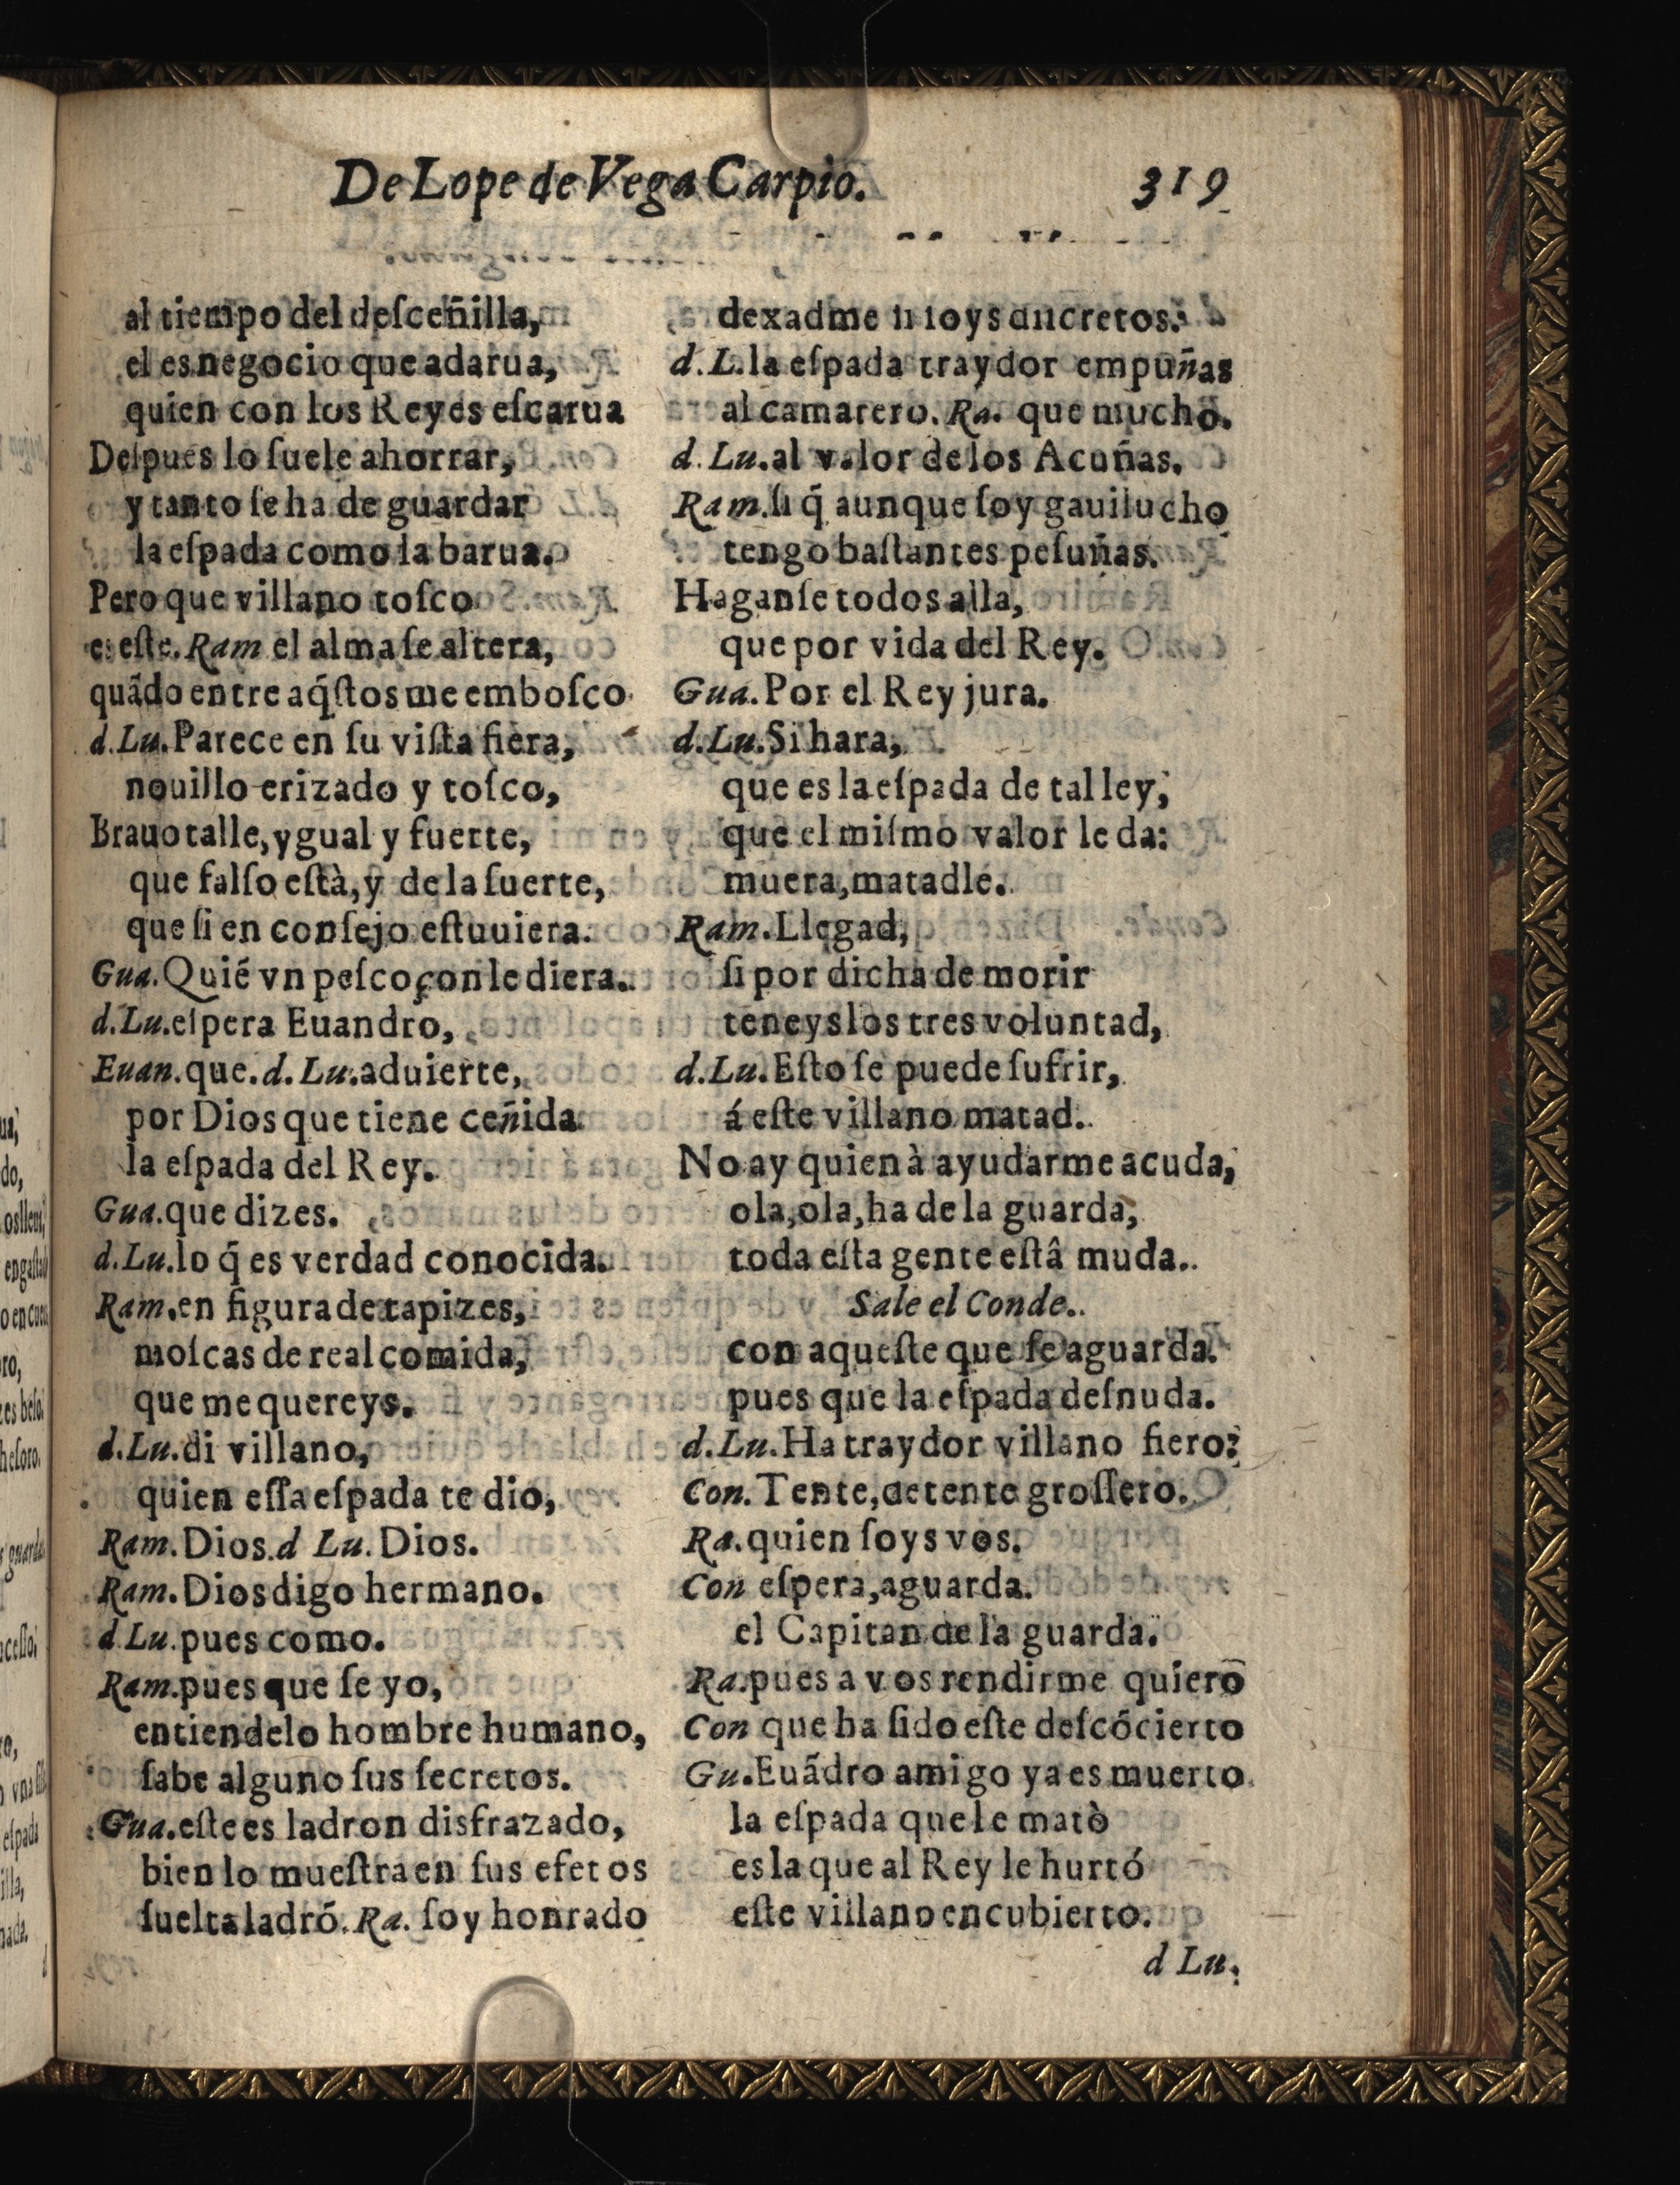 De Lope de Vega Carpio. 319
al tiempo del desceñilla,
el es negocio que adarua,
quien con los Reyes escarua
Despues lo suele ahorrar,
y tanto se ha de guardar
la espada como la barua.
Pero que villano tosco
es este. Ram el alma se altera,
quãdo entre aq̃stos me embosco
d.Lu. Parece en su vista fiera,
nouillo erizado y tosco,
Brauo talle, ygual y fuerte,
que falso està, y de la suerte,
que si en consejo estuuiera.
Gua. Quié vn pescoçon le diera.
d.Lu. espera Euandro,
Euan. que. d. Lu. aduierte,
por Dios que tiene ceñida
la espada del Rey.
Gua. que dizes.
d.Lu. lo q̃ es verdad conocida.
Ram. en figura de tapizes,
moscas de real comida,
que me quereys.
d.Lu. di villano,
quien essa espada te dio,
Ram. Dios. d Lu. Dios.
Ram. Dios digo hermano.
d Lu. pues como.
Ram. pues que se yo,
entiendelo hombre humano,
sabe alguno sus secretos.
Gua. este es ladron disfrazado,
bien lo muestra en sus efetos
suelta ladró. Ra. soy honrado
dexadme si soys discretos.
d.L. la espada traydor empuñas
al camarero. Ra. que mucho.
d.Lu. al valor de los Acuñas.
Ram. si q̃ aunque soy gauilucho
tengo bastantes pesuñas.
Haganse todos alla,
que por vida del Rey.
Gua. Por el Rey jura.
d.Lu. Si hara,
que es la espada de tal ley,
que el mismo valor le da:
muera, matadle.
Ram. Llegad,
si por dicha de morir
teneys los tres voluntad,
d.Lu. Esto se puede sufrir,
á este villano matad.
No ay quien à ayudarme acuda,
ola, ola, ha de la guarda,
toda esta gente estâ muda.
Sale el Conde.
con aqueste que se aguarda.
pues que la espada desnuda.
d.Lu. Ha traydor villano fiero?
Con. Tente, detente grossero.
Ra. quien soys vos.
Con espera, aguarda.
el Capitan de la guarda.
Ra. pues a vos rendirme quiero
Con que ha sido este descócierto
Gu. Euãdro amigo ya es muerto
la espada que le matò
es la que al Rey le hurtó
este villano encubierto.
d Lu.